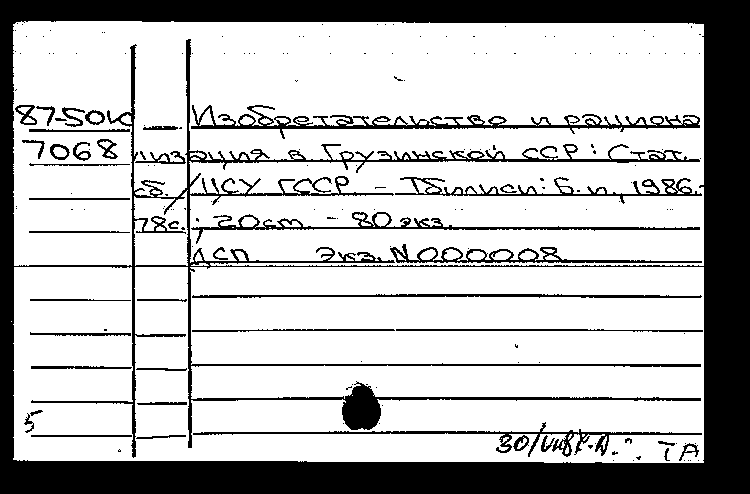 87-50к Изобретательство и рациона
7068 лизация в Грузинской ССР: Стат.
сб. / ЦСУ ГССР - Тбилиси: Б.и., 1986.-
78с.; 20см. - 80 экз.
ДСП. Экз. N000008
5
ТА